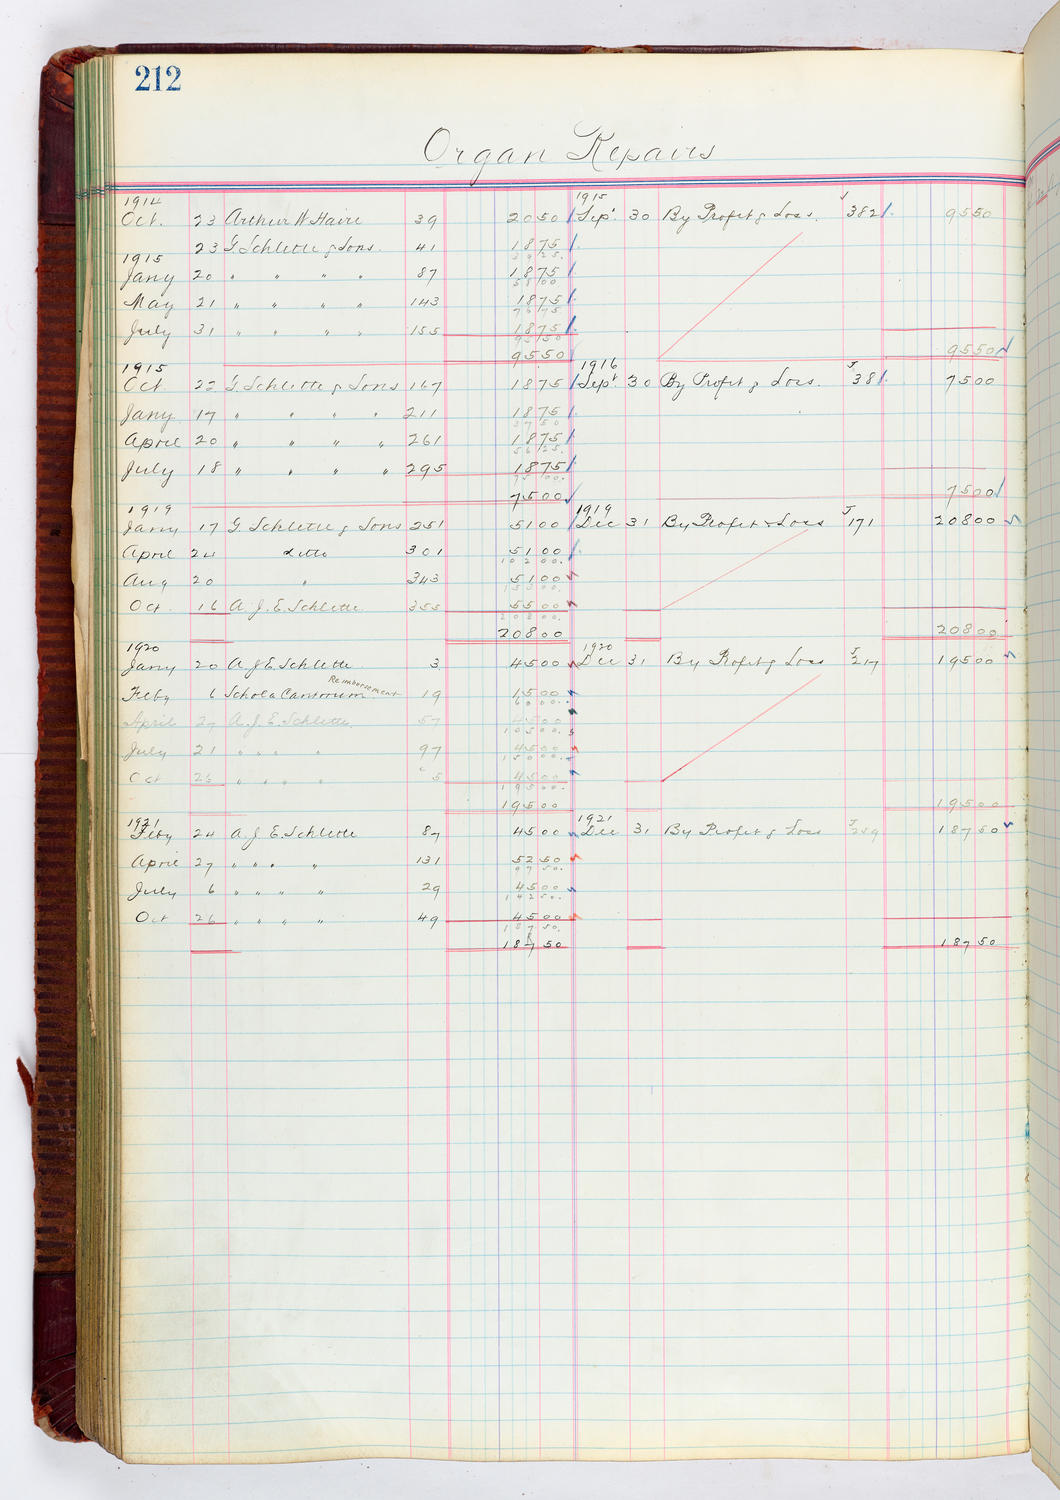 212
Organ Repairs
1914 1915
Oct. 23 Arthur W Haire 39 2050 Sept. 30 By Profit & Loss. J 382 9550
23 G. Schlette & Sons. 41 1875
3925.
1915
Jany 20 " " " " 87 1875
5800
May 21 " " " " 143 1875
7675
July 31 " " " " 155 1875
9550
9550 9550
1915 1916
Oct. 22 G. Schlette & Sons 167 1875 Sept 30 By Profit & Loss. J 38 7500
Jany 17 " " " " 211 1875
3750
April 20 " " " " 261 1875
5625.
July 18 " " " " 295 1875
7500.
7500 7500
1919 1919
Jany 17 G. Schlette & Sons 251 5100 Dec 31 By Profit & Loss J 171 20800
April 24 ditto 301 5100
10200.
Aug 20 " 343 5100
15300.
Oct. 16 A. J. E. Schlette 355 5500
20800.
20800 20800
1920 1920
Jany 20 A. J. E. Schlette 3 4500 Dec 31 By Profit & Loss J 217 19500
Feby 6 Schola Cantorum Reimbursement 19 1500
6000.
April 27 A. J. E. Schlette 57 4500
10500.
July 21 " " " " 97 4500
15000.
Oct 26 " " " " 5 4500
19500.
19500 19500
1921 1921
Feby 24 A. J. E. Schlette 87 4500 Dec 31 By Profit & Loss J 259 18750
April 27 " " " " 131 5250
9750.
July 6 " " " " 29 4500
14250.
Oct 26 " " " " 49 4500
18750.
18750 18750